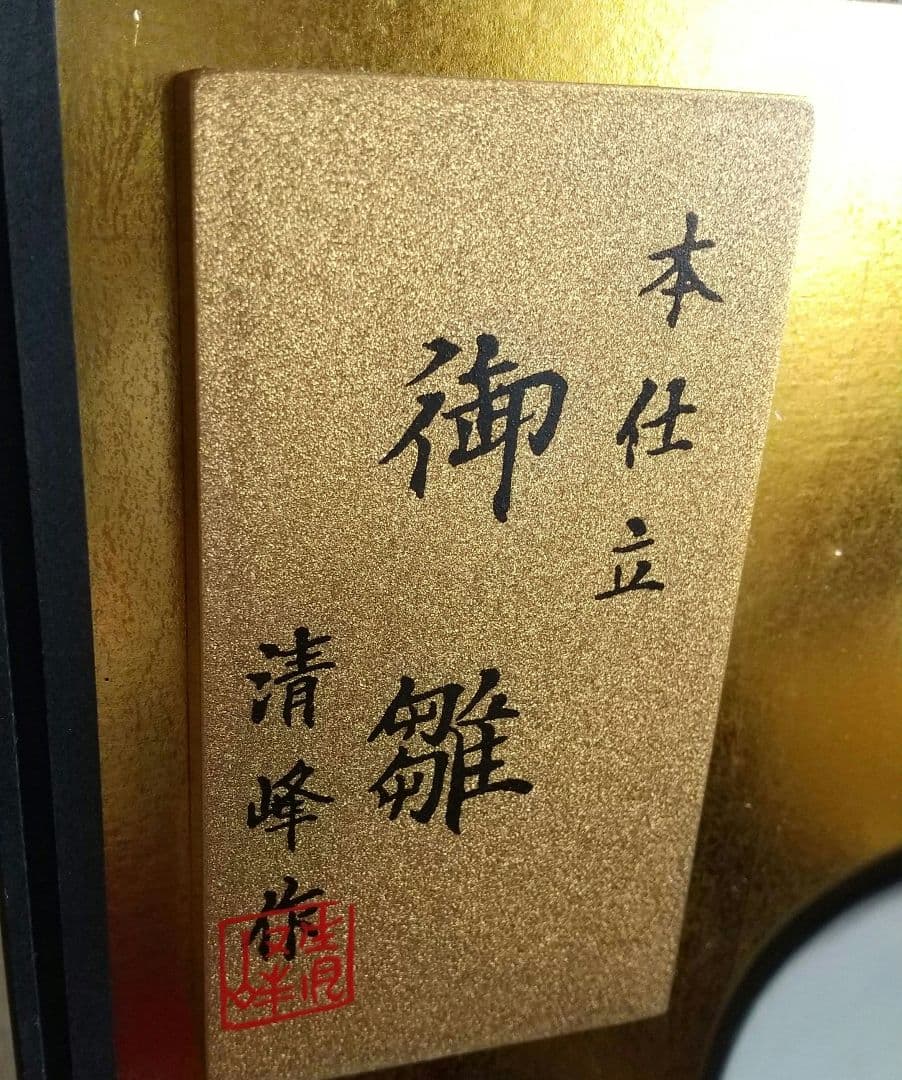 本仕立
御雛
清峰作